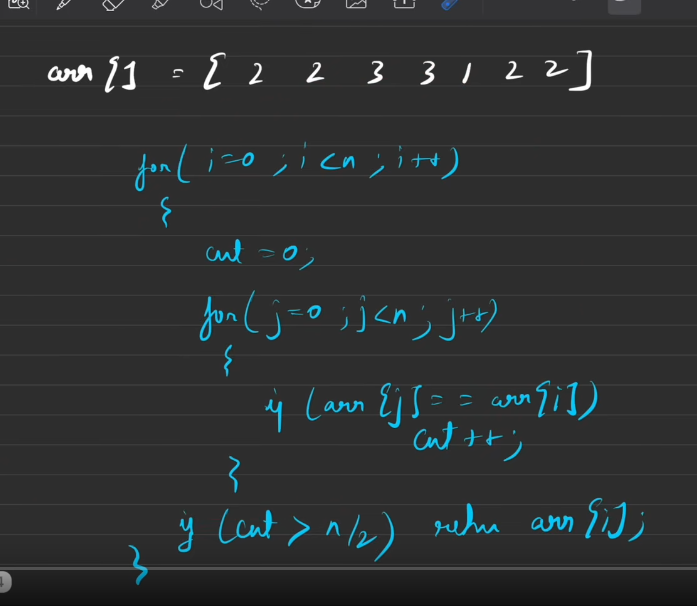 arr[] = [ 2 2 3 3 1 2 2 ]
for( i=0 ; i<n ; i++)
{
cnt = 0;
for( j=0 ; j<n ; j++)
{
if (arr[j] == arr[i])
cnt++;
}
if (cnt > n/2) return arr[i];
}